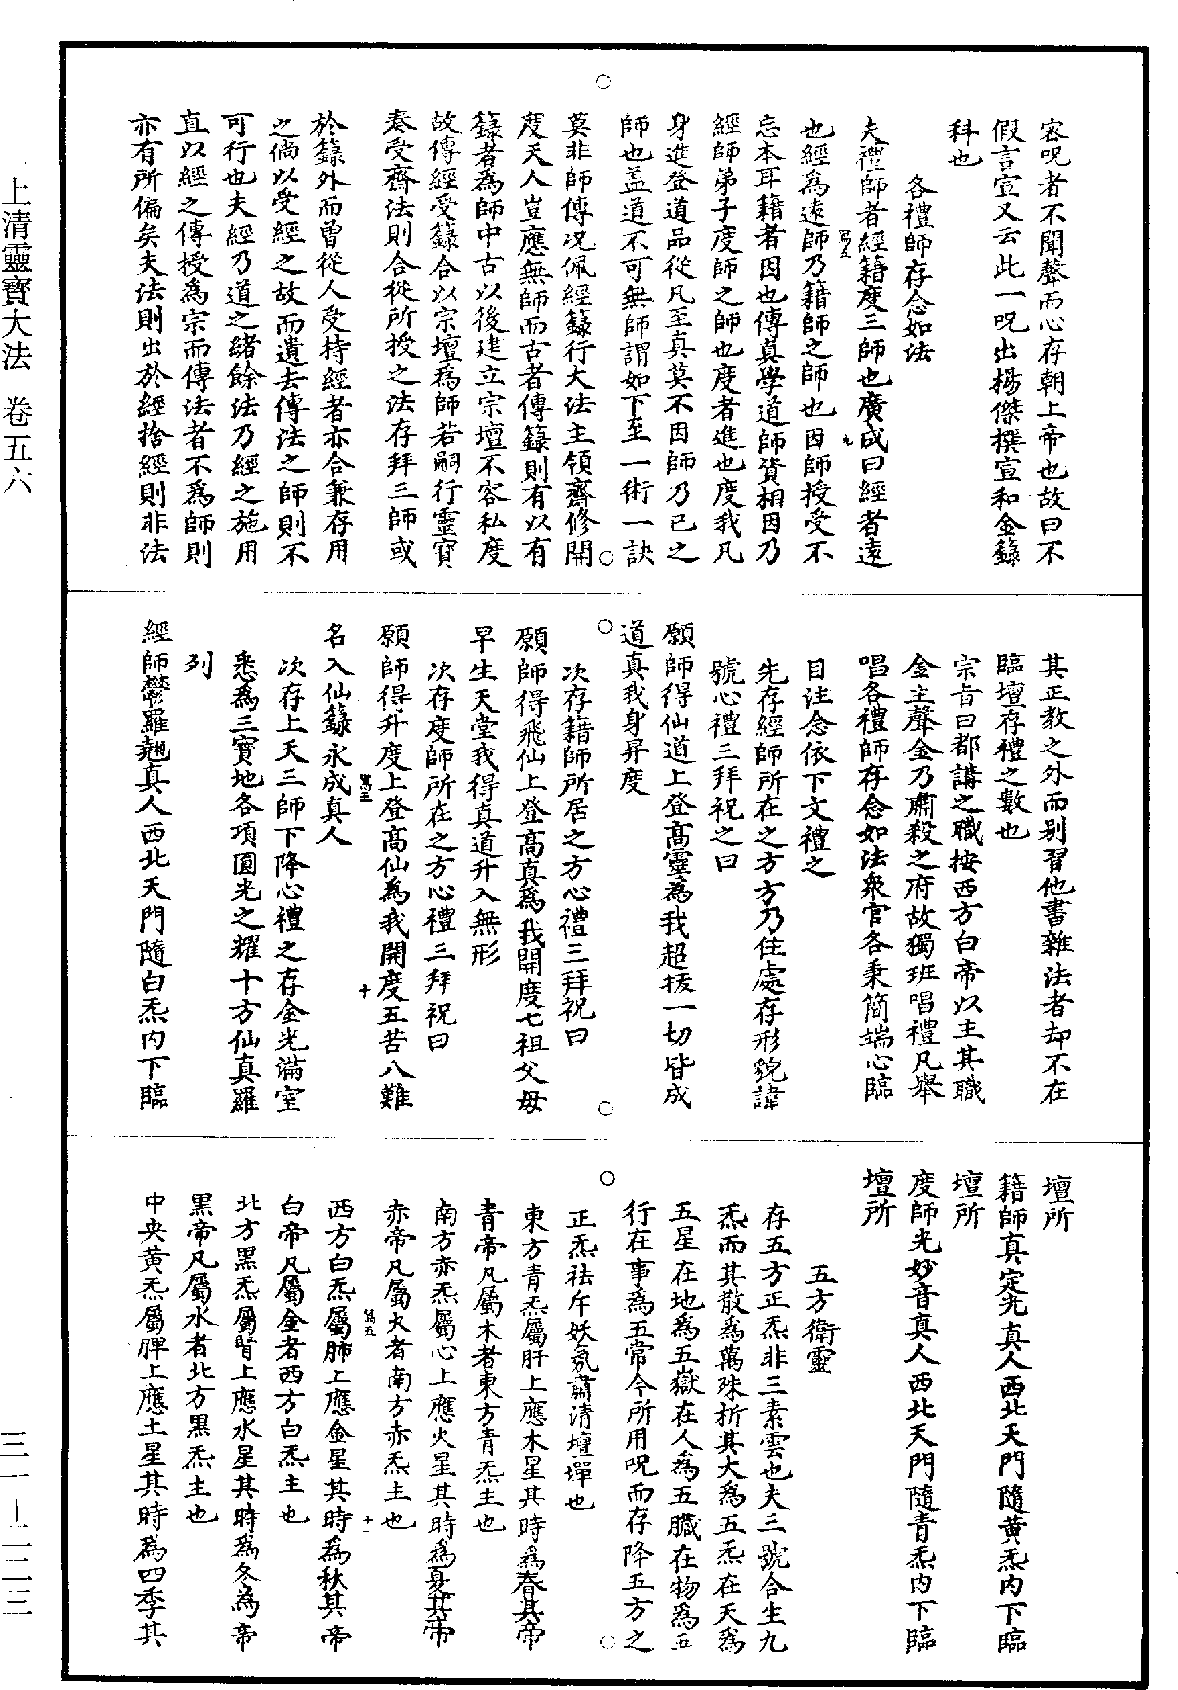 上清靈寶大法　卷五六
三一-二二三
容呪者不聞聲而心存朝上帝也故曰不
假言宣又云此一呪出楊傑撰宣和金籙
科也
各禮師存念如法
夫禮師者經籍度三師也廣成曰經者遠
也經爲遠師乃籍師之師也因師授受不
忘本耳籍者因也傳真學道師資相因乃
經師弟子度師之師也度者進也度我凡
身進登道品從凡至真莫不因師乃己之
師也蓋道不可無師謂如下至一術一訣
莫非師傳况佩經籙行大法主領齋修開
度天人豈應無師而古者傳籙則有以有
籙者為師中古以後建立宗壇不容私度
故傳經受籙合以宗壇爲師若嗣行靈寶
奏受齋法則合從所授之法存拜三師或
於籙外而曾從人受持經者亦合兼存用
之倘以受經之故而遺去傳法之師則不
可行也夫經乃道之緒餘法乃經之施用
直以經之傳授爲宗而傳法者不爲師則
亦有所偏矣夫法則出於經捨經則非法
其正教之外而别習他書雜法者却不在
臨壇存禮之數也
宗旨曰都講之職按西方白帝以主其職
金主聲金乃肅殺之府故獨班唱禮凡舉
唱各禮師存念如法衆官各秉簡端心臨
目注念依下文禮之
先存經師所在之方方乃住處存形貌諱
號心禮三拜祝之曰
願師得仙道上登髙靈為我超拔一切皆成
道真我身昇度
次存籍師所居之方心禮三拜祝曰
願師得飛仙上登髙真爲我開度七祖父母
早生天堂我得真道升入無形
次存度師所在之方心禮三拜祝曰
願師得升度上登髙仙為我開度五苦八難
名入仙籙永成真人
次存上天三師下降心禮之存金光滿室
悉為三寶地各項圓光之耀十方仙真羅
列
經師鬱羅翹真人西北天門隨白炁内下臨
壇所
籍師真定光真人西北天門隨黄炁内下臨
壇所
度師光妙音真人西北天門隨青炁内下臨
壇所
五方衛靈
存五方正炁非三素雲也夫三號合生九
炁而其散爲萬殊折其大爲五炁在天爲
五星在地爲五嶽在人爲五臟在物爲五
行在事爲五常今所用呪而存降五方之
正炁祛斥妖氛肅清壇墠也
東方青炁屬肝上應木星其時爲春其帝
青帝凡屬木者東方青炁主也
南方赤炁屬心上應火星其時爲夏其帝
赤帝凡屬火者南方赤炁主也
西方白炁屬肺上應金星其時爲秋其帝
白帝凡屬金者西方白炁主也
北方黑炁屬腎上應水星其時爲冬為帝
黑帝凡屬水者北方黑炁主也
中央黄炁屬脾上應土星其時爲四季其